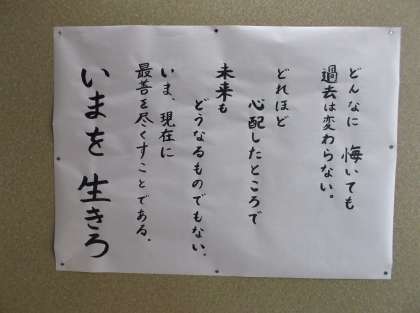 どんなに 悔いても
過去は変わらない。
どれほど
心配したところで
未来も
どうなるものでもない。
いま、現在に
最善を尽くすことである。
いまを 生きろ